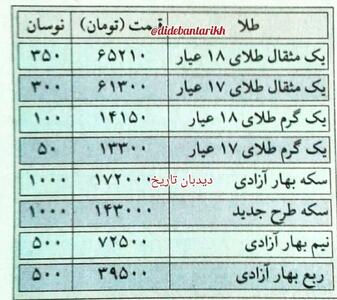 @didebantarikh
طلا قیمت (تومان) نوسان
یک مثقال طلای ۱۸ عیار ۶۵۲۱۰ ۳۵۰
یک مثقال طلای ۱۷ عیار ۶۱۳۰۰ ۳۰۰
یک گرم طلای ۱۸ عیار ۱۴۱۵۰ ۱۰۰
یک گرم طلای ۱۷ عیار ۱۳۳۰۰ ۵۰
سکه بهار آزادی ۱۷۲۰۰۰ ۱۰۰۰
دیدبان تاریخ
سکه طرح جدید ۱۴۳۰۰۰ ۱۰۰۰
نیم بهار آزادی ۷۲۵۰۰ ۵۰۰
ربع بهار آزادی ۳۹۵۰۰ ۵۰۰